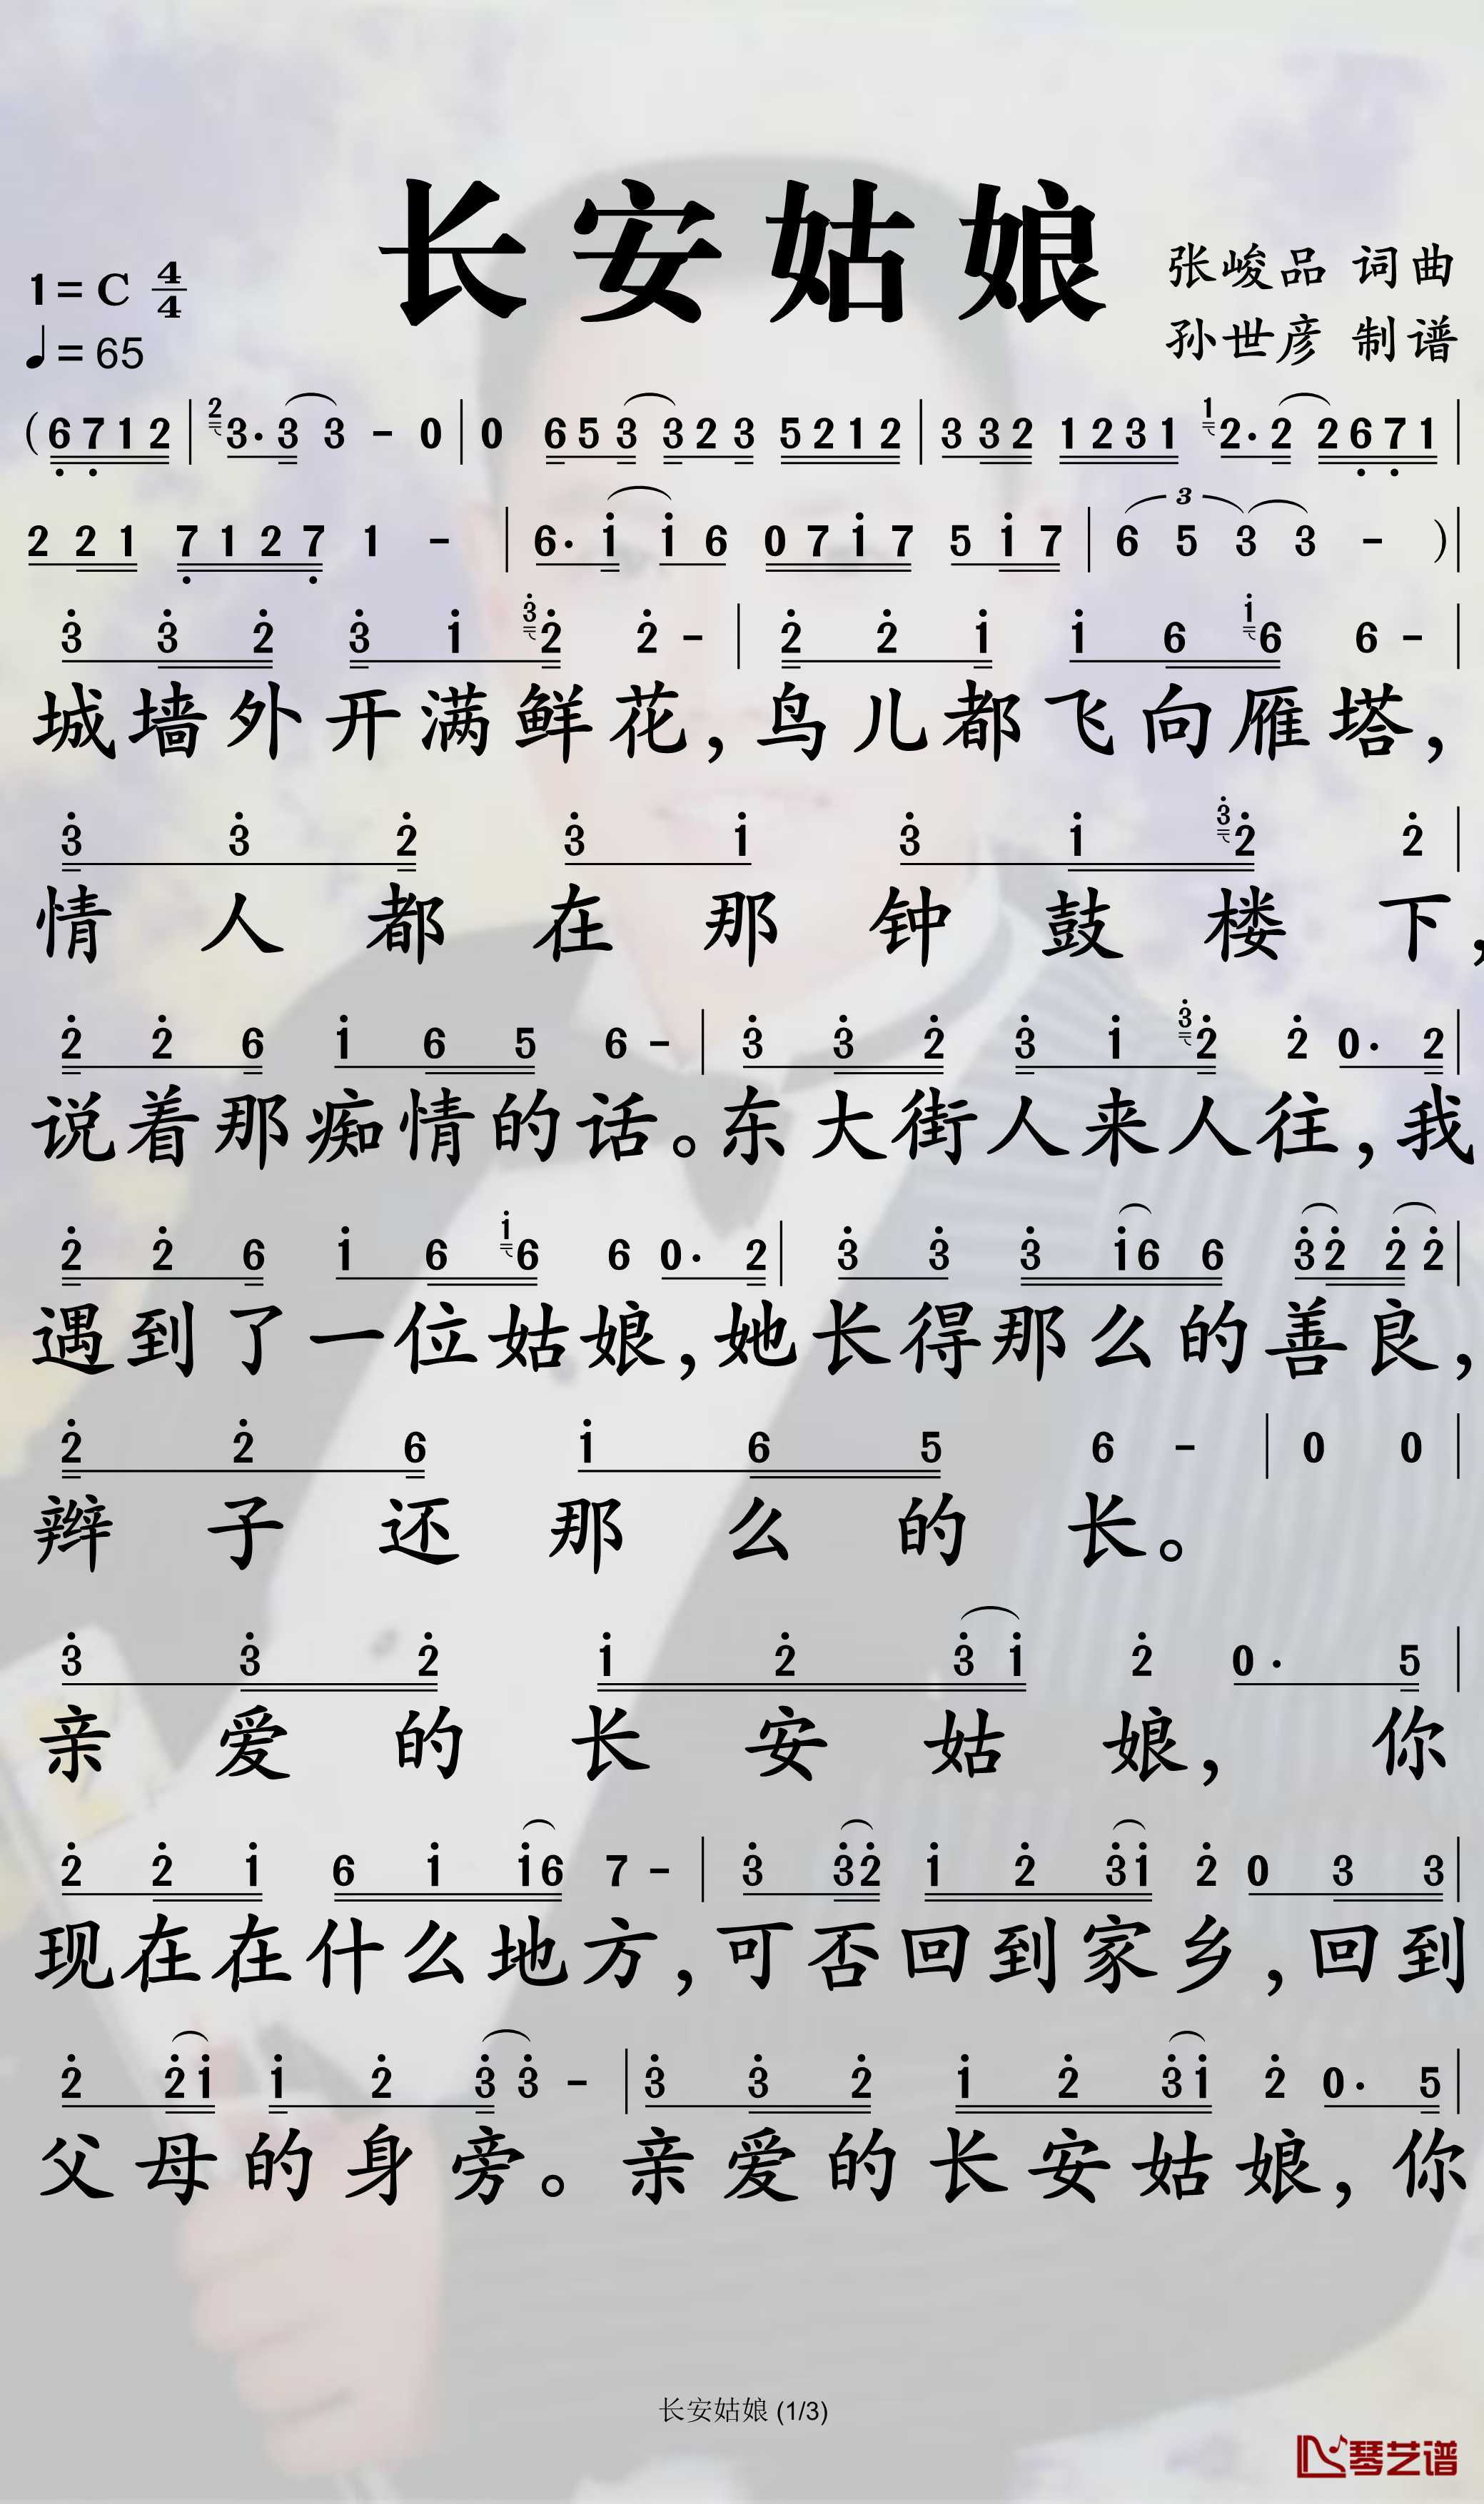 长安姑娘
1=C 4/4
♩=65
张峻品 词曲
孙世彦 制谱
(6̣ 7̣ 1 2 | 2 3· 3 3 - 0 | 0 6 5 3 3 2 3 5 2 1 2 | 3 3 2 1 2 3 1 1 2· 2 2 6̣ 7̣ 1 |
2 2 1 7̣ 1 2 7̣ 1 - | 6· i i 6 0 7 i 7 5 i 7 | 3 6 5 3 3 - ) |
3̇ 3̇ 2̇ 3̇ i 3̇ 2̇ 2̇ - | 2̇ 2̇ i i 6 i 6 6 - |
城墙外开满鲜花,鸟儿都飞向雁塔,
3̇ 3̇ 2̇ 3̇ i 3̇ i 3̇ 2̇ 2̇ |
情人都在那钟鼓楼下,
2̇ 2̇ 6 i 6 5 6 - | 3̇ 3̇ 2̇ 3̇ i 3̇ 2̇ 2̇ 0· 2̇ |
说着那痴情的话。东大街人来人往,我
2̇ 2̇ 6 i 6 i 6 6 0· 2̇ | 3̇ 3̇ 3̇ i 6 6 3̇ 2̇ 2̇ 2̇ |
遇到了一位姑娘,她长得那么的善良,
2̇ 2̇ 6 i 6 5 6 - | 0 0 |
辫子还那么的长。
3̇ 3̇ 2̇ i 2̇ 3̇ i 2̇ 0· 5 |
亲爱的长安姑娘,你
2̇ 2̇ i 6 i i 6 7 - | 3̇ 3̇ 2̇ i 2̇ 3̇ i 2̇ 0 3 3 |
现在在什么地方,可否回到家乡,回到
2̇ 2̇ i i 2̇ 3̇ 3̇ - | 3̇ 3̇ 2̇ i 2̇ 3̇ i 2̇ 0· 5 |
父母的身旁。亲爱的长安姑娘,你
长安姑娘 (1/3)
琴艺谱